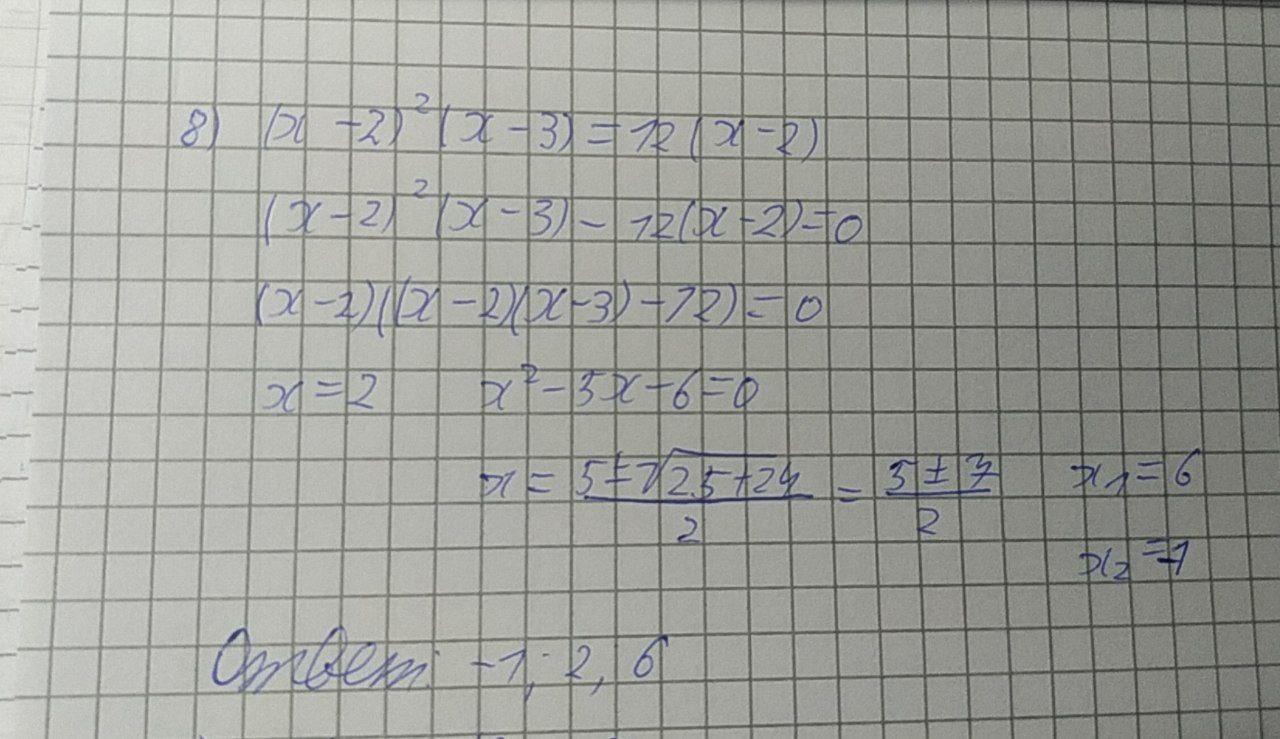 8) (x - 2)² (x - 3) = 12 (x - 2)
(x - 2)² (x - 3) - 12(x - 2) = 0
(x - 2)((x - 2)(x - 3) - 12) = 0
x = 2 x² - 5x - 6 = 0
x = (5 ± √(25 + 24))/2 = (5 ± 7)/2 x₁ = 6
x₂ = -1
Ответ: -1, 2, 6